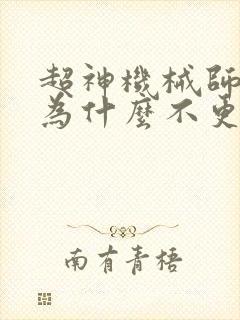 超神機械師
為什麼不更
南有青梧